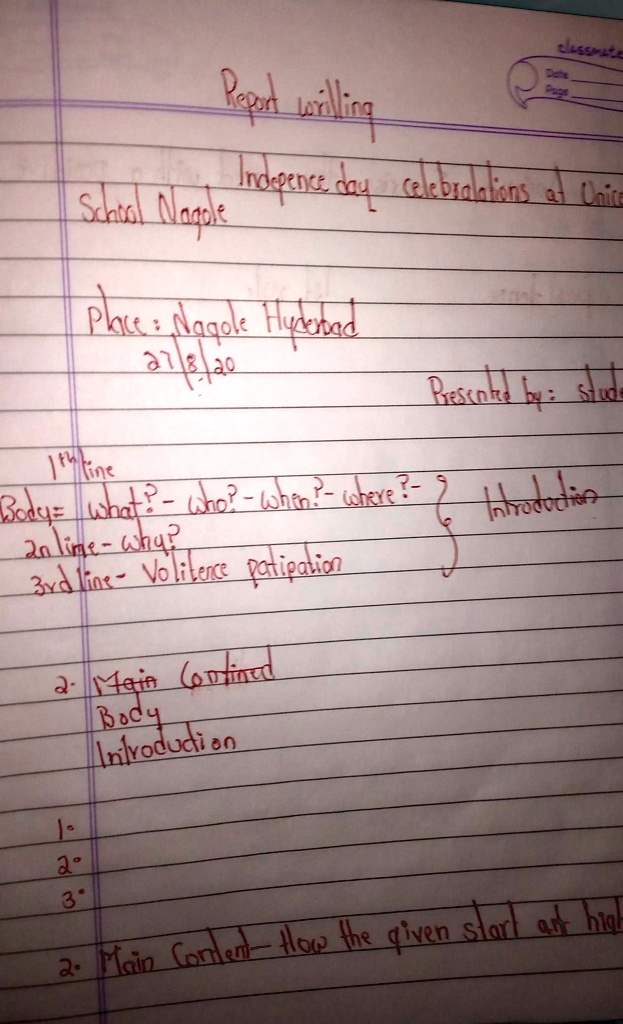 classmate
Date
Page
Report writing
Indepence day celebralations at Unice
School Nagole
Place: Nagole Hyderbad
27/8/20
Presented by: stude
1th line
Body = what? - who? - when? - where? -
Introduction
2n line - why?
3rd line - Volitence patipation
2. Main Contined
Body
Introduction
1.
2.
3.
2. Main Content - How the given start high